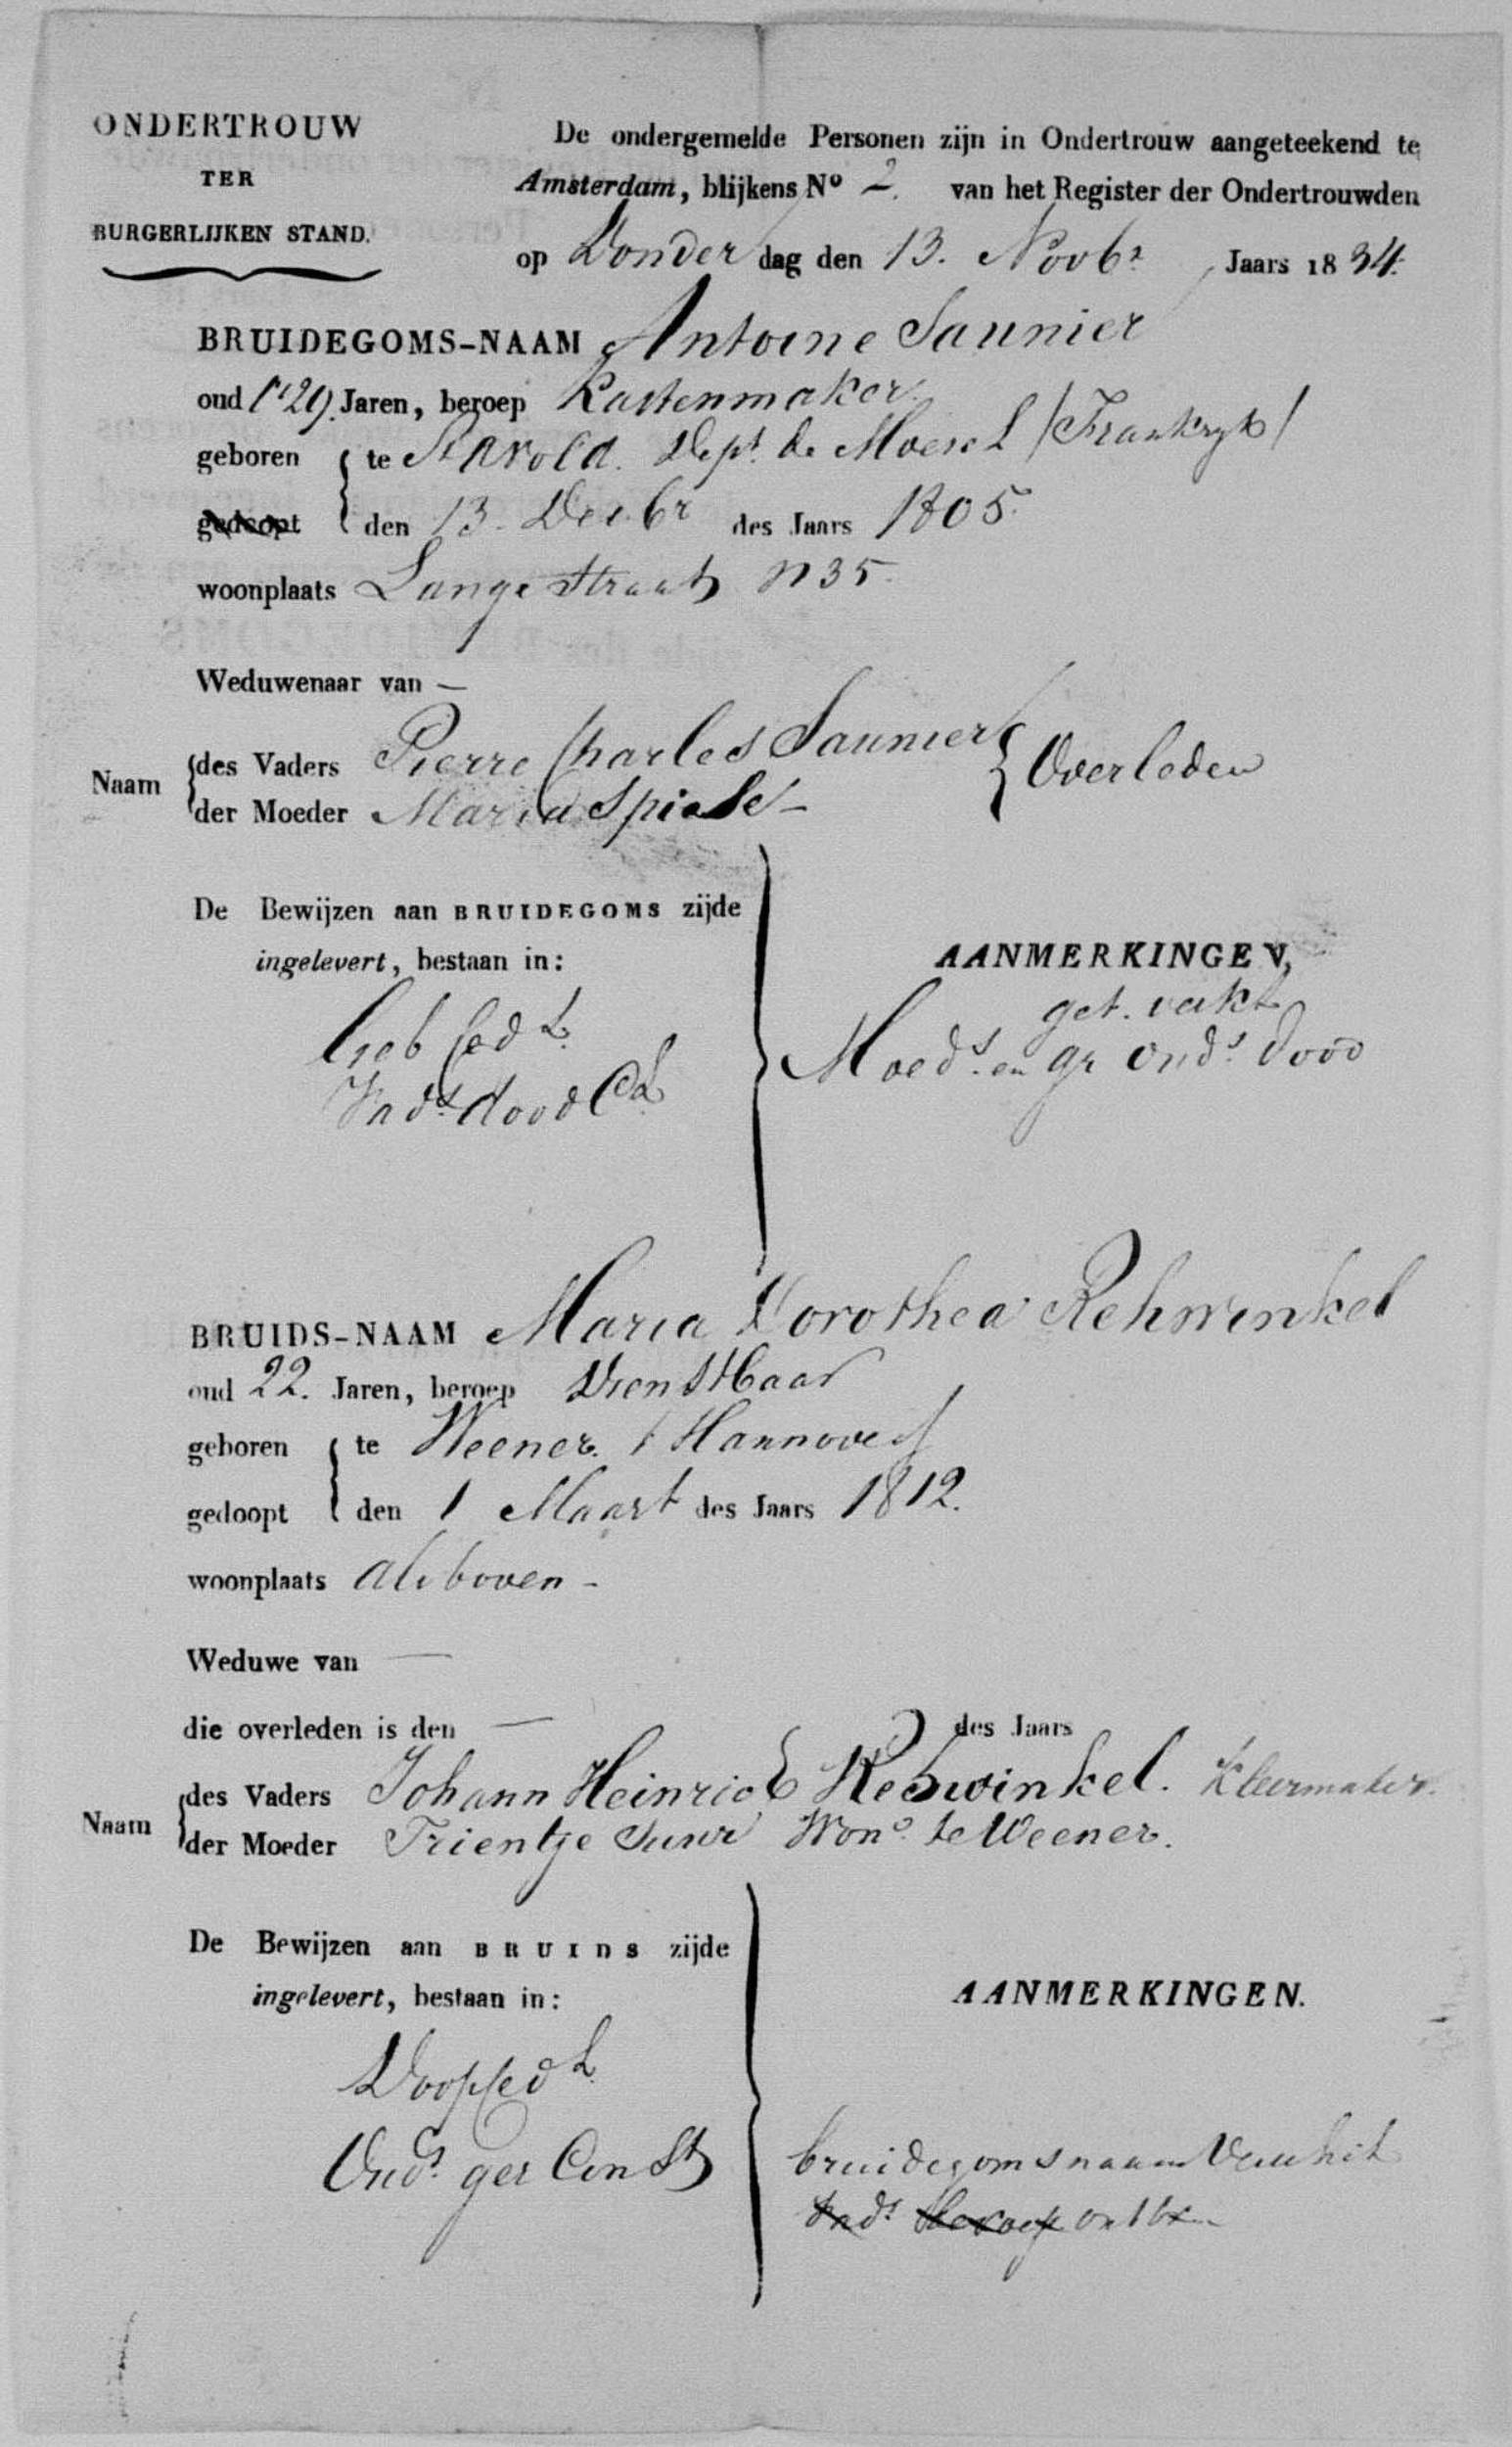 ONDERTROUW
TER
BURGERLIJKEN STAND.
De ondergemelde Personen zijn in Ondertrouw aangeteekend te
Amsterdam, blijkens No 2. van het Register der Ondertrouwden
op Donder dag den 13. Novbr Jaars 1834.
BRUIDEGOMS-NAAM Antoine Saunier
oud 29. Jaren, beroep Kastenmaker.
geboren te St Avold. Dept. de Moesel /Frankryk/
gedoopt den 13. Decbr des Jaars 1805.
woonplaats Lange Straat N 35.
Weduwenaar van —
Naam
des Vaders Pierre Charles Saunier
der Moeder Maria
Overleden
De Bewijzen aan BRUIDEGOMS zijde
ingelevert, bestaan in:
Geb Ced L
Vads dood Cd
AANMERKINGEN,
get.
Moeds. en gr Ouds. dood
BRUIDS-NAAM Maria Dorothea Rehwinkel
oud 22. Jaren, beroep Dienstbaar
geboren te Weener. / Hannover/
gedoopt den 1 Maart des Jaars 1812.
woonplaats als boven -
Weduwe van —
die overleden is den — des Jaars
Naam
des Vaders Johann Heinrich Rehwinkel. Kleermaker.
der Moeder Trientje Wone. te Weener.
De Bewijzen aan BRUIDS zijde
ingelevert, bestaan in:
Doop Ced L
Ouds. ger Const
AANMERKINGEN.
bruidegoms naam
Vads beroep ontbr